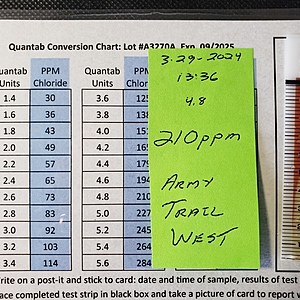 Quantab Conversion Chart: Lot #A3270A Exp. 09/2025
uantab PPM Quantab PPM
Units Chloride Units Chlor
1.4 30 3.6 125
1.6 36 3.8 138
1.8 43 4.0 151
2.0 49 4.2 165
2.2 57 4.4 179
2.4 65 4.6 194
2.6 73 4.8 210
2.8 83 5.0 227
3.0 92 5.2 245
3.2 103 5.4 264
3.4 114 5.6 284
3-29-2024
13:36
4.8
210ppm
ARMY
TRAIL
WEST
rite on a post-it and stick to card: date and time of sample, results of test
ace completed test strip in black box and take a picture of card to report